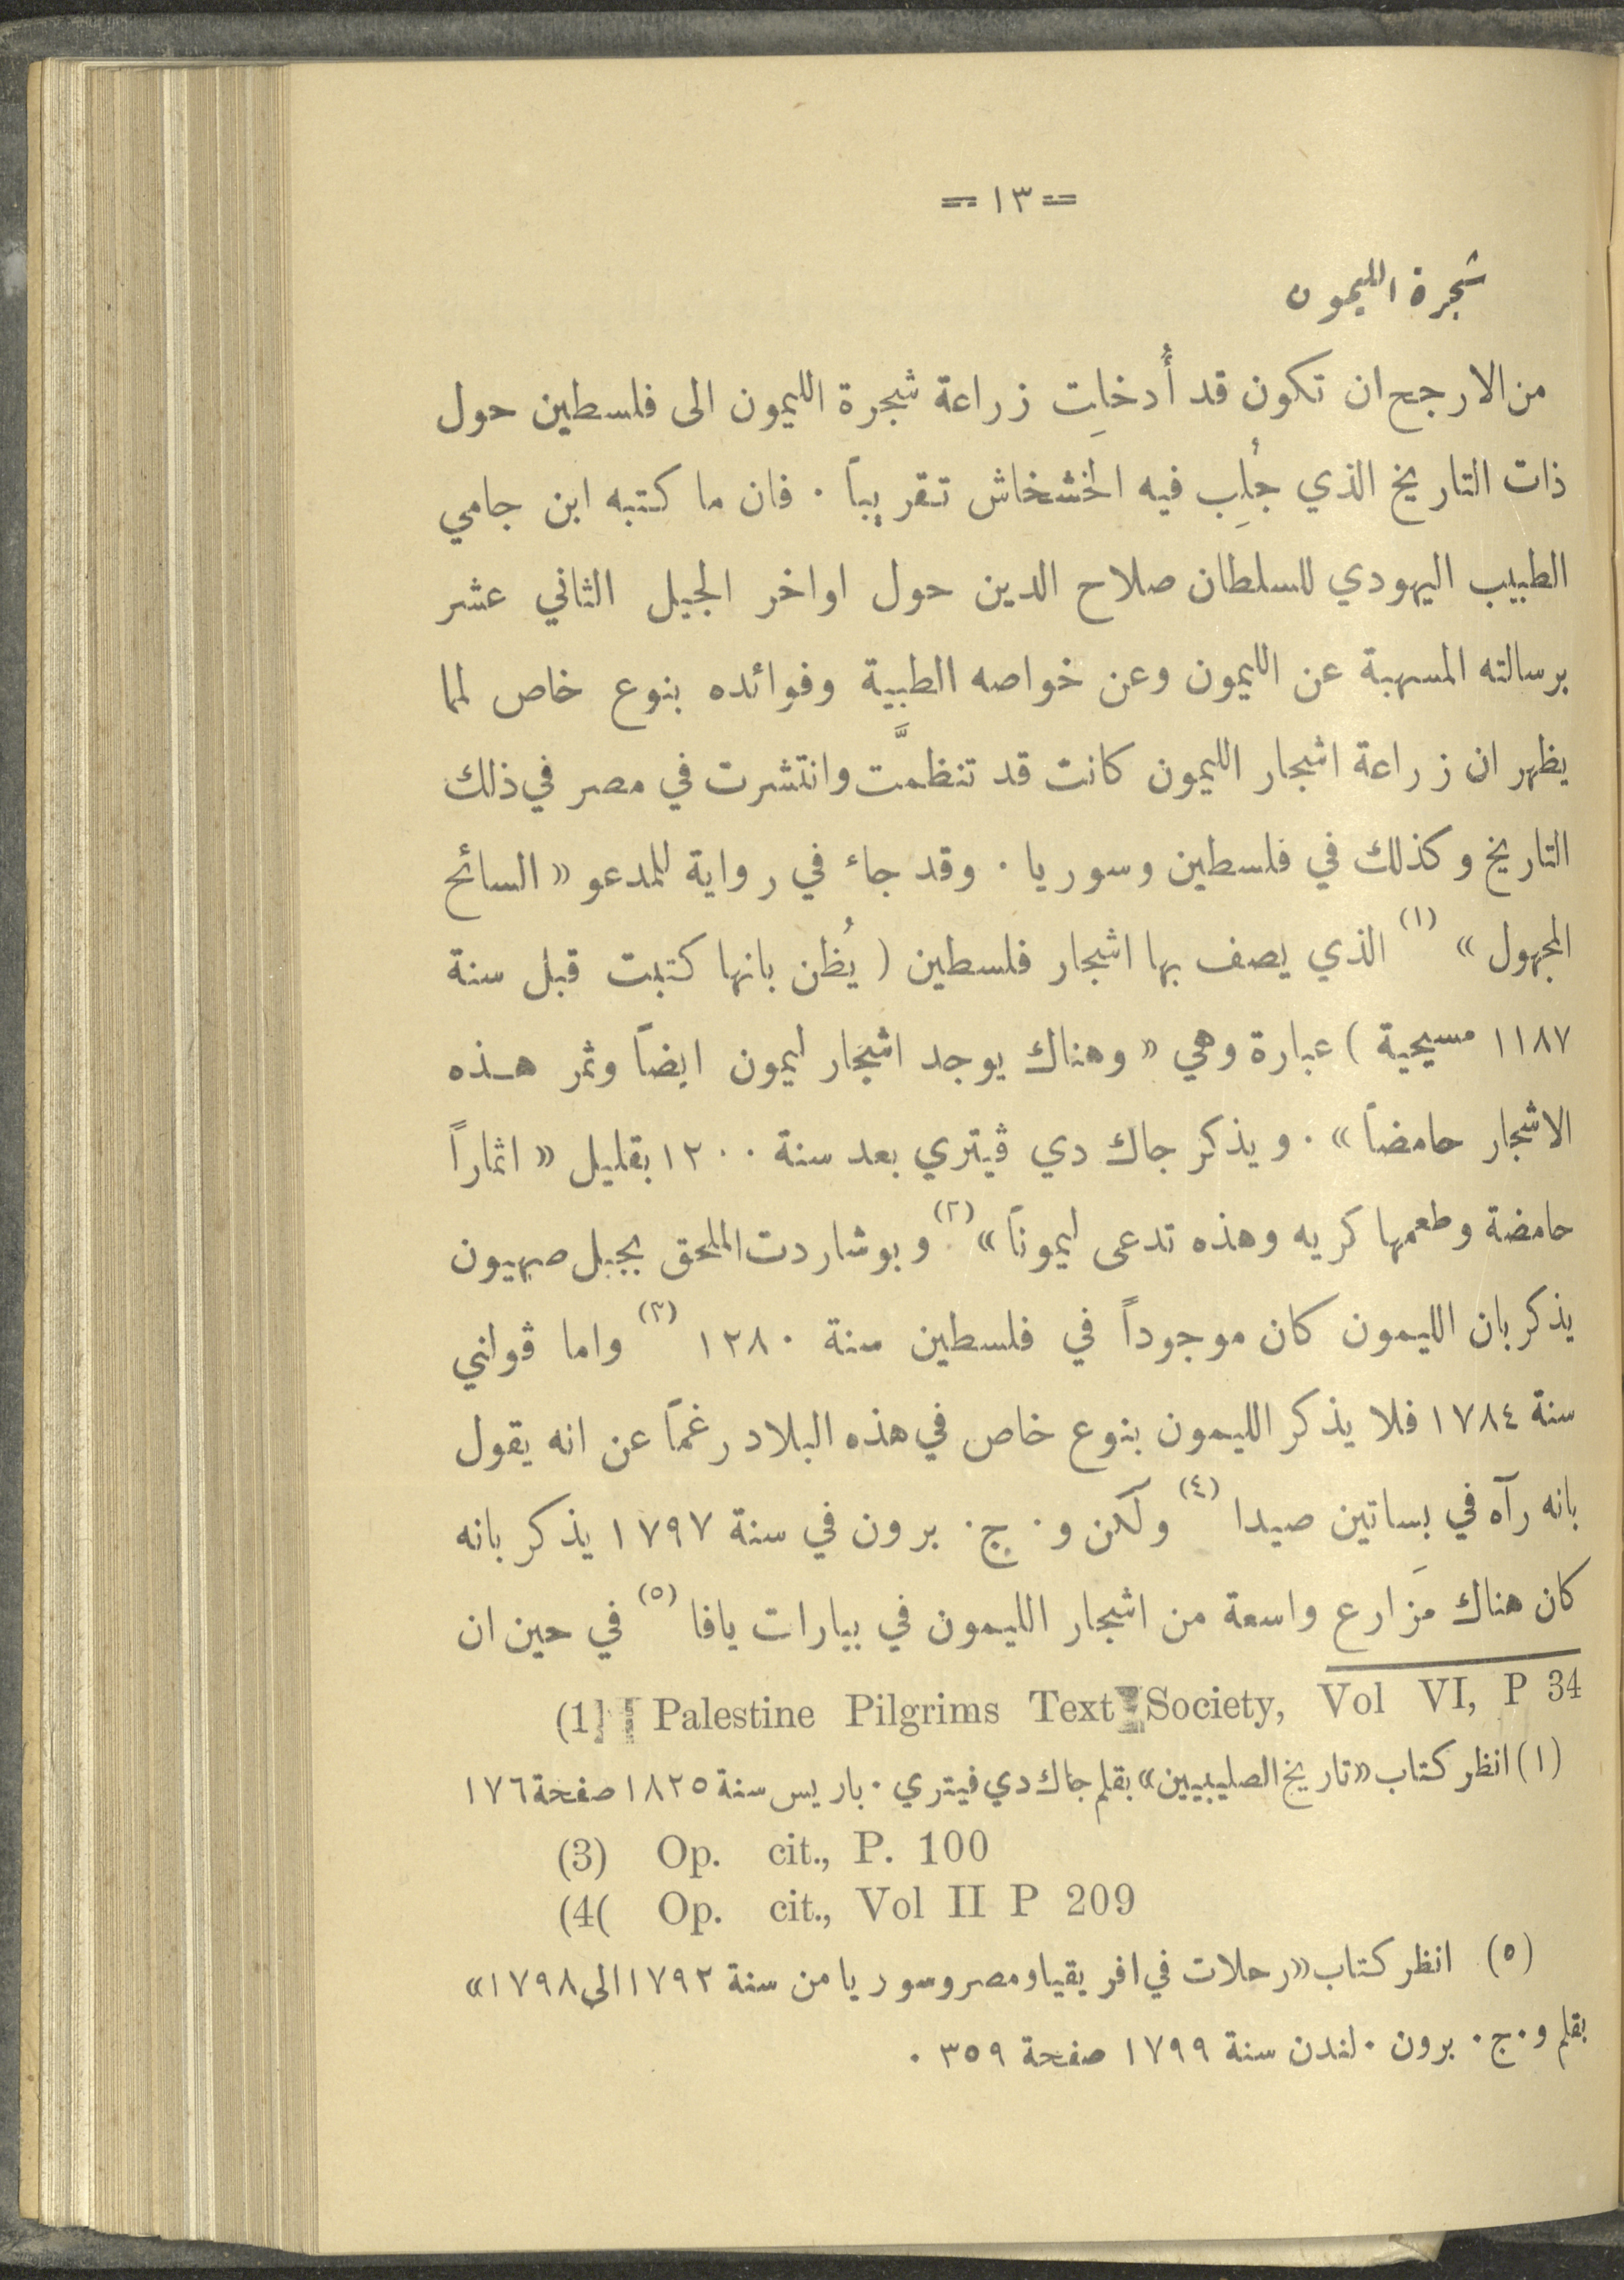 = ١٣ =
شجرة الليمون
من الارجح ان تكون قد أُدخلِت زراعة شجرة الليمون الى فلسطين حول
ذات التاريخ الذي جُلِب فيه الخشخاش تقريباً . فان ما كتبه ابن جامي
الطبيب اليهودي للسلطان صلاح الدين حول اواخر الجيل الثاني عشر
برسالته المسهبة عن الليمون وعن خواصه الطبية وفوائده بنوع خاص لمما
يظهر ان زراعة اشجار الليمون كانت قد تنظمَّت وانتشرت في مصر في ذلك
التاريخ وكذلك في فلسطين وسوريا . وقد جاء في رواية للمدعو « السائح
المجهول » (١) الذي يصف بها اشجار فلسطين ( يُظن بانها كتبت قبل سنة
١١٨٧ مسيحية ) عبارة وهي « وهناك يوجد اشجار ليمون ايضاً وثمر هـذه
الاشجار حامضاً » . ويذكر جاك دي ڤيتري بعد سنة ١٢٠٠ بقليل « اثماراً
حامضة وطعمها كريه وهذه تدعى ليموناً » (٢). وبوشاردت الملحق بجبل صهيون
يذكر بان الليمون كان موجوداً في فلسطين سنة ١٢٨٠ (٣) واما ڤولني
سنة ١٧٨٤ فلا يذكر الليمون بنوع خاص في هذه البلاد رغماً عن انه يقول
بانه رآه في بساتين صيدا (٤) ولكن و . ج . برون في سنة ١٧٩٧ يذكر بانه
كان هناك مَزارع واسعة من اشجار الليمون في بيارات يافا (٥) في حين ان
(1) Palestine Pilgrims Text Society, Vol VI, P 34
(١) انظر كتاب «تاريخ الصليبيين» بقلم جاك دي فيتري . باريس سنة ١٨٢٥ صفحة ١٧٦
(3) Op. cit., P. 100
(4( Op. cit., Vol II P 209
(٥) انظر كتاب «رحلات في افريقيا ومصر وسوريا من سنة ١٧٩٢ الى ١٧٩٨»
بقلم و . ج . برون . لندن سنة ١٧٩٩ صفحة ٣٥٩ .